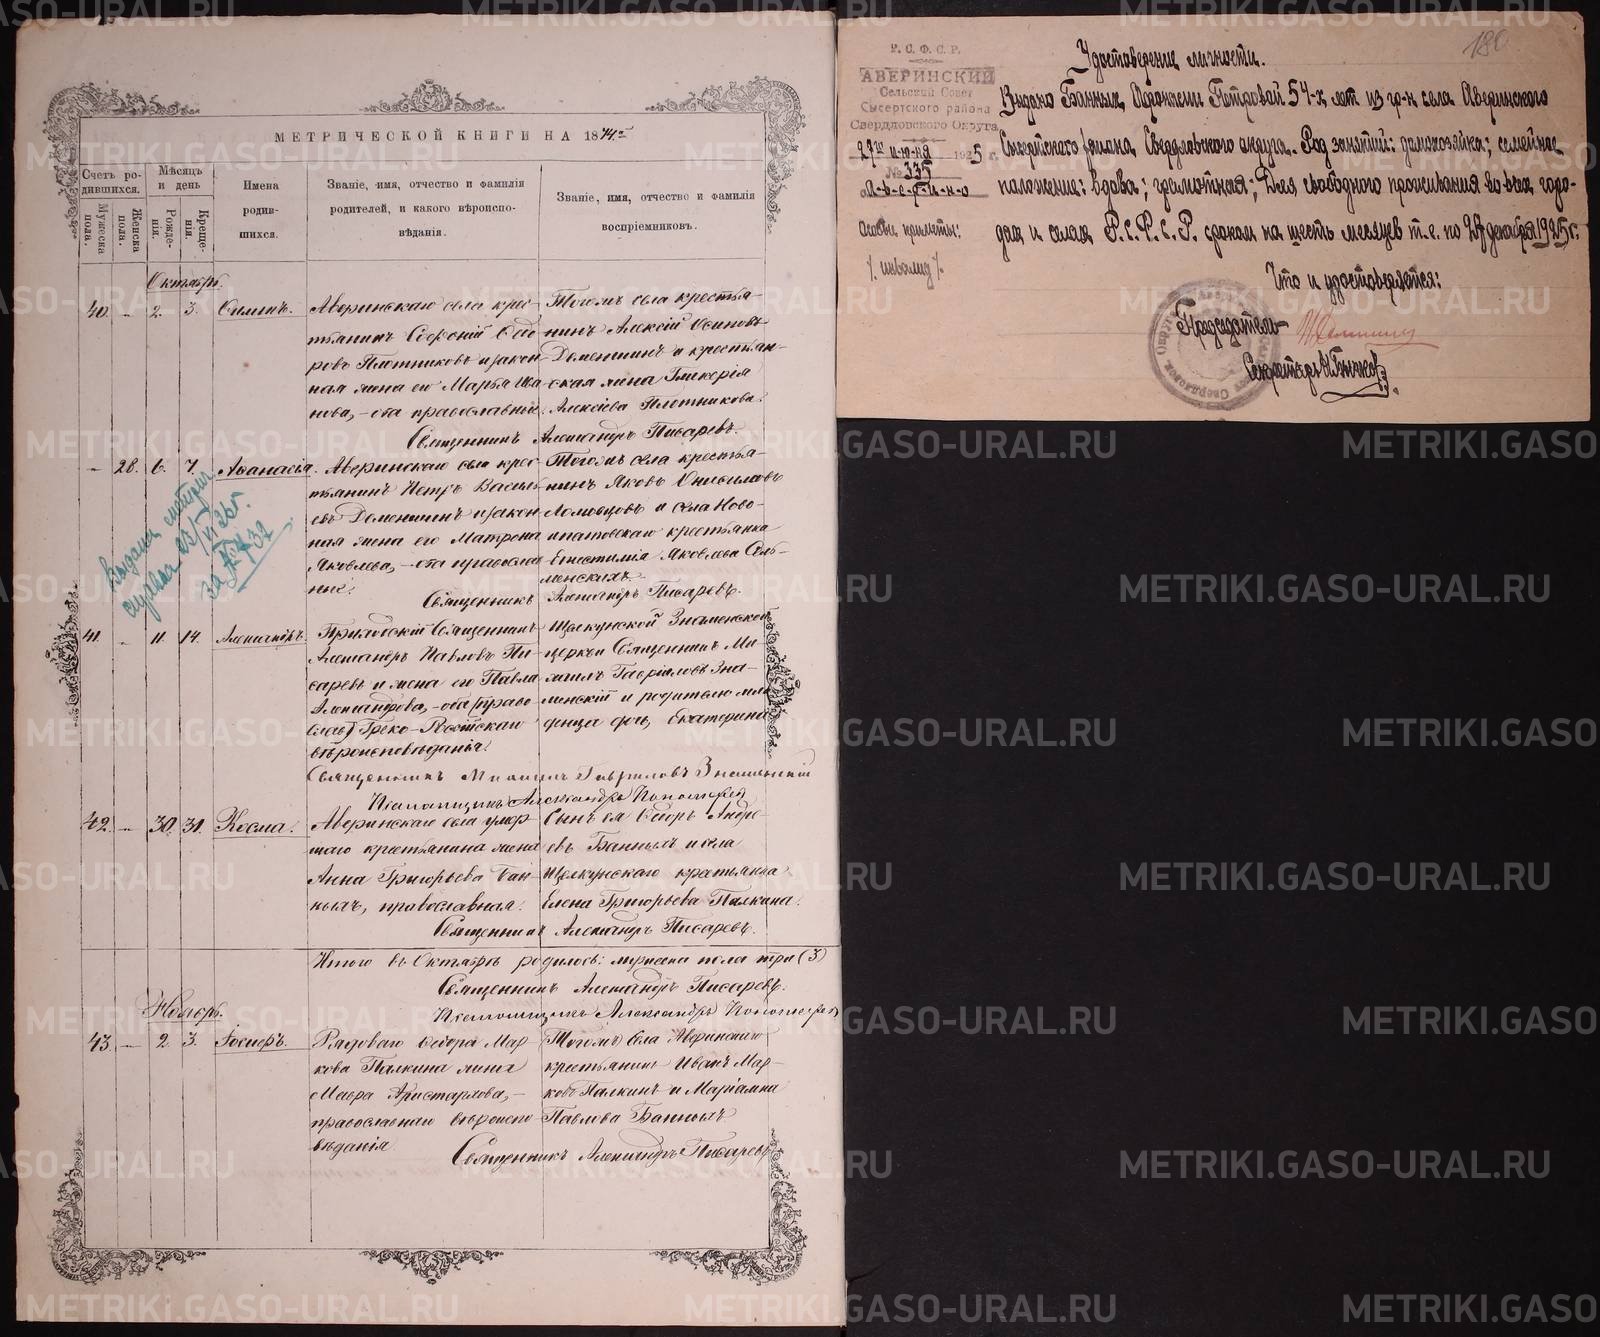 МЕТРИЧЕСКОЙ КНИГИ НА 1874 г.
Счетъ родившихся.
Мужеска пола.
Женска пола.
Мѣсяцъ и день
Рожденія.
Крещенія.
Имена родившихся.
Званіе, имя, отчество и фамилія родителей, и какого вѣроисповѣданія.
Званіе, имя, отчество и фамилія воспріемниковъ.
Октябрь.
40. - 2. 3.
Аверинскаго села крес-
тьянинъ Софроній Ѳедо-
ровъ Плотниковъ и закон-
ная жена его Марья Ива-
нова, - оба православніе.
Тогожъ села крестья-
нинъ Алексій Осиповъ
Деменшинъ и крестьян-
ская жена Гликерія
Алексіева Плотникова.
Священникъ Александръ Писаревъ.
- 28. 6. 7. Аѳанасія.
Аверинскаго села крес-
тьянинъ Петръ Василь-
евъ Деменшинъ и закон-
ная жена его Матрона
Яковлева, - оба православ-
ніе.
Тогожъ села крестья-
нинъ Яковъ
и села Ново-
ипатовскаго крестьянка
Яковлева
Священникъ Александръ Писаревъ.
Выдана
справка 23/VI 26 г.
за №
41. - 11. 14. Александръ.
Священникъ
Александръ Павловъ Пи-
саревъ и жена его Павла
Александрова, - оба (право-
слав) Греко-Россійскаго
вѣроисповѣданія.
Щелкунской Знаменской
церкви Священникъ Ми-
хаилъ Гавріиловъ Зна-
менскій и родителю мла-
денца дочь Екатерина
Священникъ Михаилъ Гавриловъ Знаменскій
Псаломщикъ Александръ Пономаревъ
42. - 30. 31. Косма.
Аверинскаго села умер-
шаго крестьянина жена
Анна Григорьева Бан-
ныхъ, православная.
Сынъ ея Ѳедоръ Андре-
евъ Банныхъ и села
Щелкунскаго крестьянка
Елена Григорьева Палкина.
Священникъ Александръ Писаревъ.
Итого въ Октябрѣ родилось: мужеска пола три (3)
Священникъ Александръ Писаревъ.
Псаломщикъ Александръ Пономаревъ
Ноябрь.
43. - 2. 3. Іосифъ.
Рядоваго Ѳедора Мар-
кова Палкина жена
Мавра Аристархова, -
православнаго вѣроиспо-
вѣданія
Тогожъ села Аверинскаго
крестьянинъ Иванъ Мар-
ковъ Палкинъ и Маріамна
Павлова Банныхъ
Священникъ Александръ Писаревъ
180
Р. С. Ф. С. Р.
АВЕРИНСКИЙ
Сельский Совет
Сысертского района
Свердловского Округа
27го июня 1925 г.
№ 335
с. А-в-е-р-и-н-о
Особые приметы:
/. инвалид /.
Удостоверение личности.
Выдано Банных Афанасии Петровой 54-х лет из гр-н села Аверинского
Сысертского района, Свердловского округа. Род занятий: домохозяйка; семейное
положение: вдова; грамотная; Для свободного проживания во всех горо-
дах и селах Р.С.Ф.С.Р. сроком на шесть месяцев т.е. по 27 декабря 1925 г.
Что и удостоверяется:
Председатель
Секретарь
METRIKI.GASO-URAL.RU